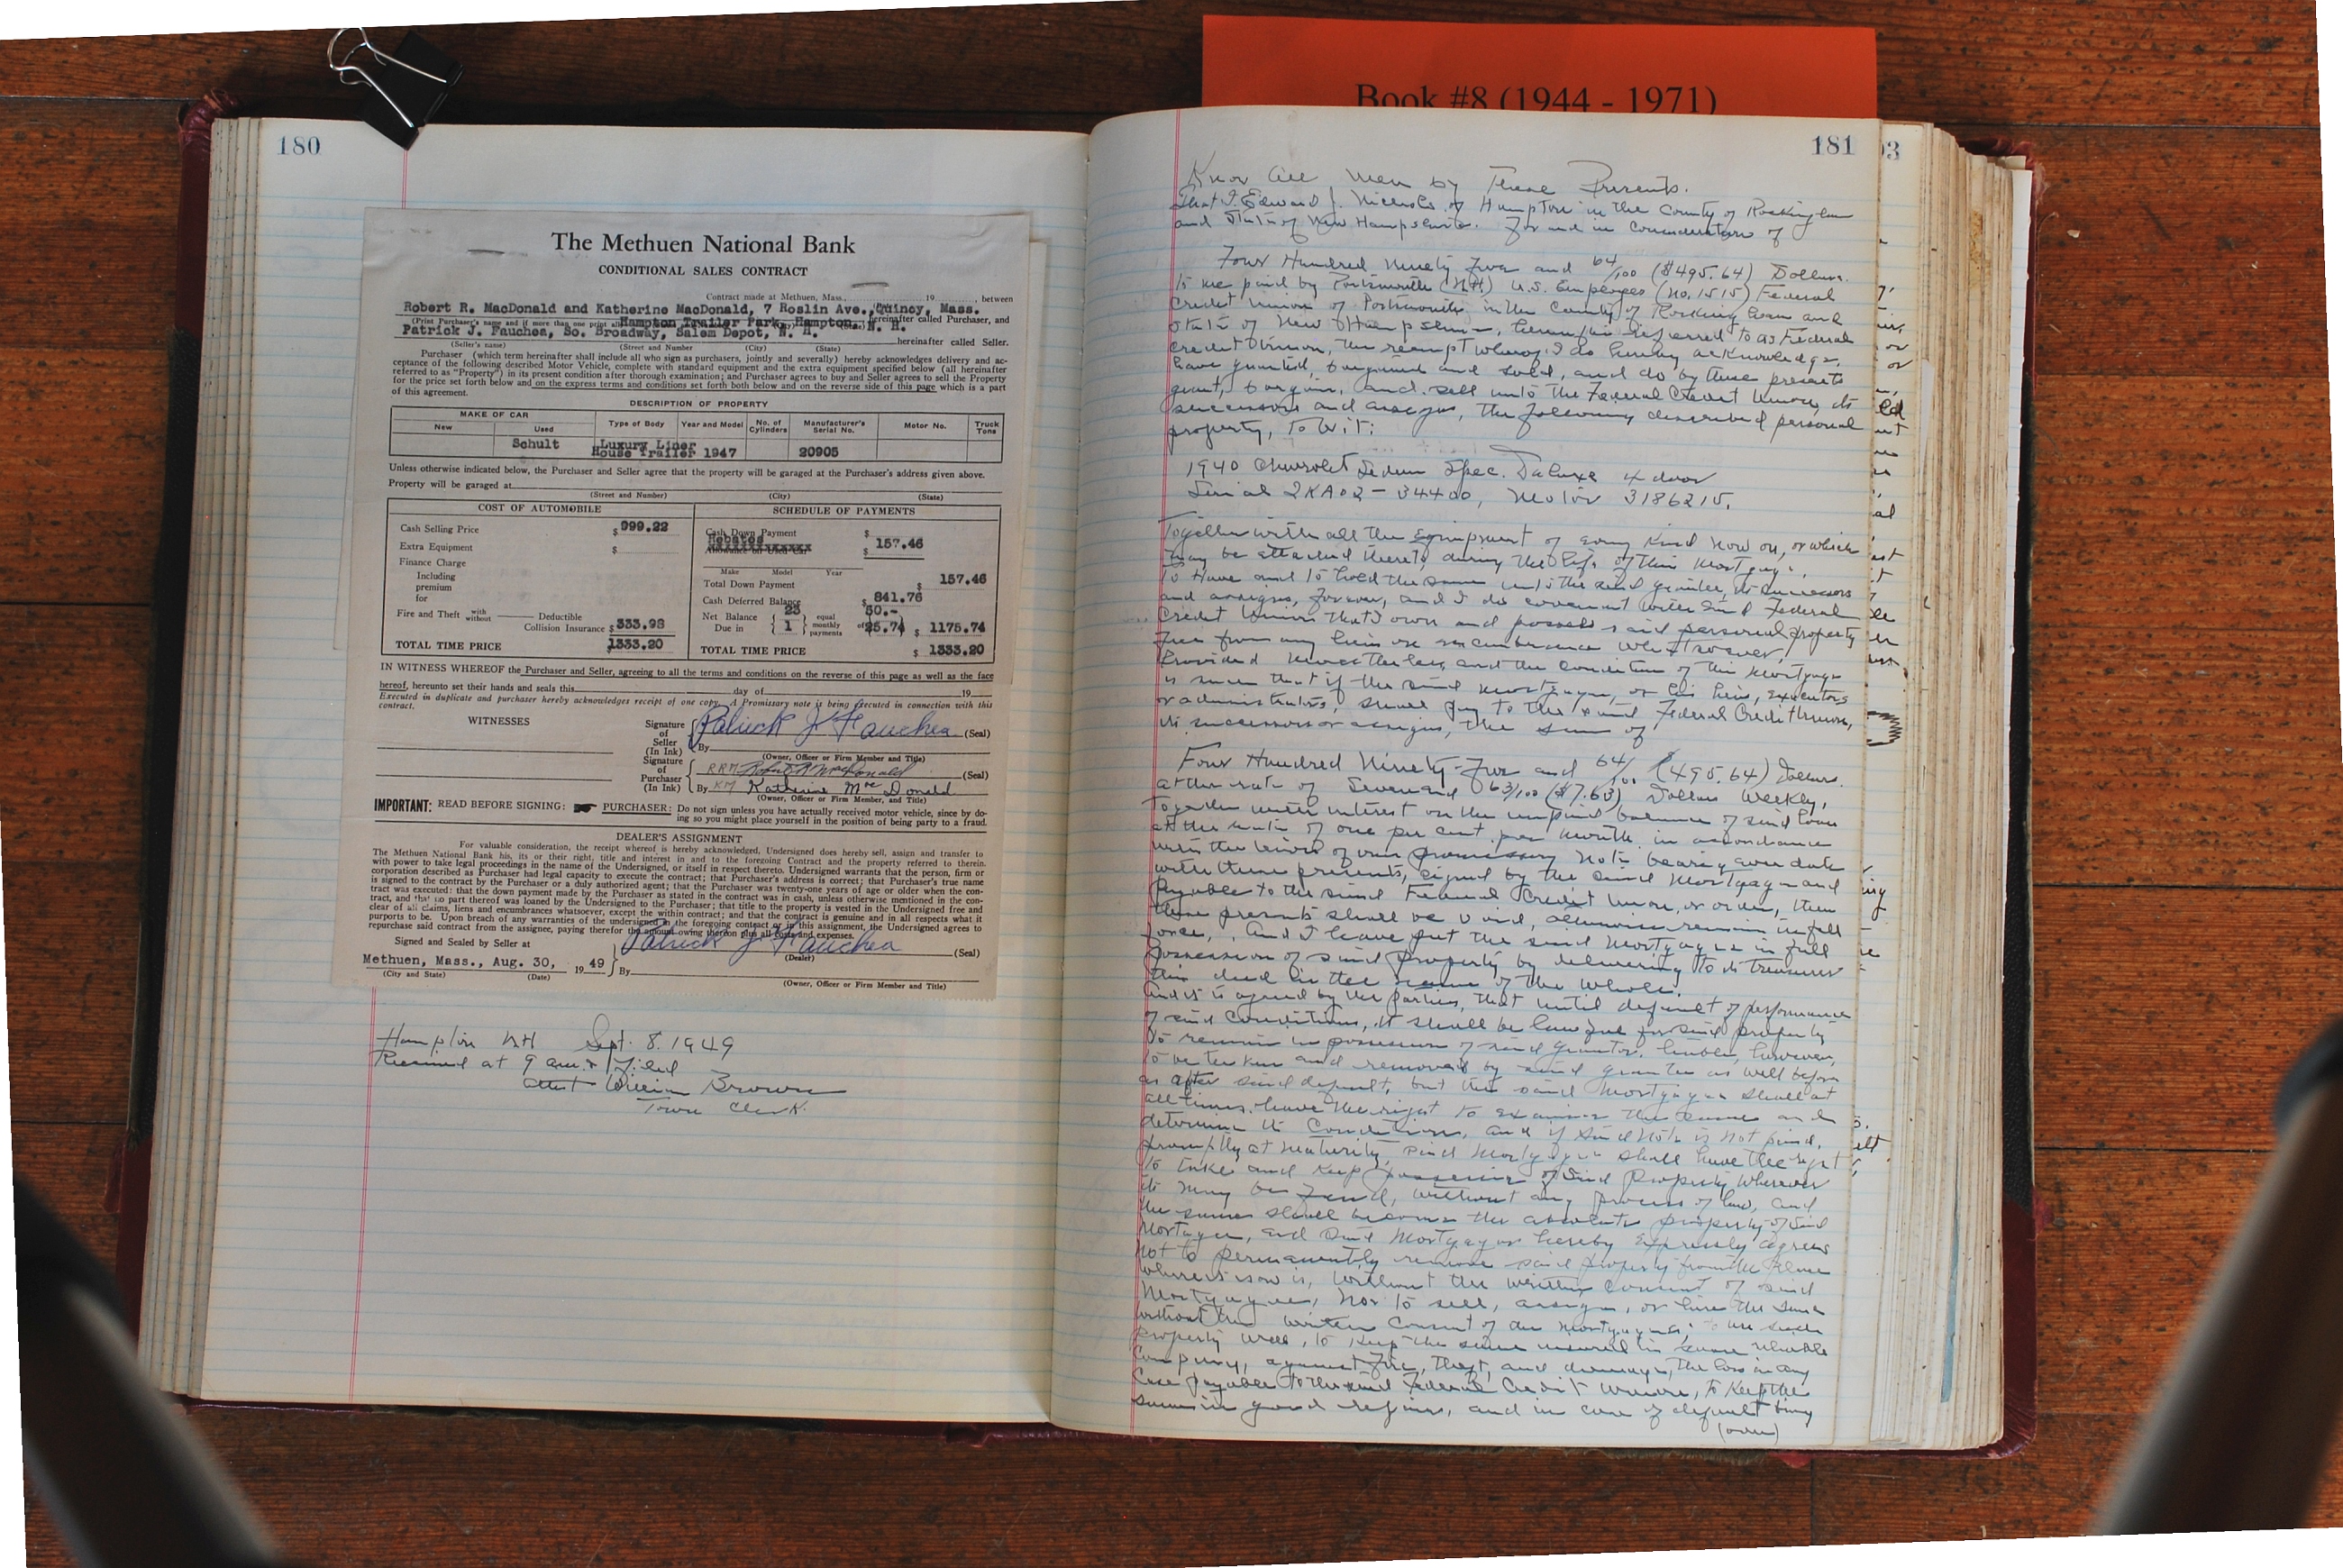 Book #8 (1944 - 1971)
180
The Methuen National Bank
CONDITIONAL SALES CONTRACT
Contract made at Methuen, Mass., 19 , between
Robert R. MacDonald and Katherine MacDonald, 7 Roslin Ave., Quincy, Mass.
Hampton Trailer Park, Hampton, N. H. hereinafter called Purchaser, and
Patrick J. Fauchea, So. Broadway, Salem Depot, N. H. hereinafter called Seller.
(Seller's name) (Street and Number (City) (State)
Purchaser (which term hereinafter shall include all who sign as purchasers, jointly and severally) hereby acknowledges delivery and ac-
ceptance of the following described Motor Vehicle, complete with standard equipment and the extra equipment specified below (all hereinafter
referred to as "Property") in its present condition after thorough examination; and Purchaser agrees to buy and Seller agrees to sell the Property
for the price set forth below and on the express terms and conditions set forth both below and on the reverse side of this page which is a part
of this agreement.
DESCRIPTION OF PROPERTY
MAKE OF CAR Type of Body Year and Model No. of Cylinders Manufacturer's Serial No. Motor No. Truck Tons
New Used
Schult Luxury Liner
House Trailer 1947 20905
Unless otherwise indicated below, the Purchaser and Seller agree that the property will be garaged at the Purchaser's address given above.
Property will be garaged at
(Street and Number) (City) (State)
COST OF AUTOMOBILE
Cash Selling Price $ 999.22
Extra Equipment $
Finance Charge
Including
premium
for
Fire and Theft with without Deductible
Collision Insurance $ 333.98
TOTAL TIME PRICE 1333.20
SCHEDULE OF PAYMENTS
Cash Down Payment $
Rebates $ 157.46
Make Model Year
Total Down Payment $ 157.46
Cash Deferred Balance $ 841.76
Net Balance 23 equal 50.-
Due in 1 monthly payments of 25.74 $ 1175.74
TOTAL TIME PRICE $ 1333.20
IN WITNESS WHEREOF the Purchaser and Seller, agreeing to all the terms and conditions on the reverse of this page as well as the face
hereof, hereunto set their hands and seals this day of 19
Executed in duplicate and purchaser hereby acknowledges receipt of one copy. A Promissory note is being executed in connection with this
contract.
WITNESSES
Signature of Seller (In Ink) Patrick J. Fauchea (Seal)
By
(Owner, Officer or Firm Member and Title)
Signature of Purchaser (In Ink) RRM Robert R MacDonald (Seal)
By KM Katherine MacDonald
(Owner, Officer or Firm Member, and Title)
IMPORTANT: READ BEFORE SIGNING: PURCHASER: Do not sign unless you have actually received motor vehicle, since by do-
ing so you might place yourself in the position of being party to a fraud.
DEALER'S ASSIGNMENT
For valuable consideration, the receipt whereof is hereby acknowledged, Undersigned does hereby sell, assign and transfer to
The Methuen National Bank his, its or their right, title and interest in and to the foregoing Contract and the property referred to therein.
with power to take legal proceedings in the name of the Undersigned, or itself in respect thereto. Undersigned warrants that the person, firm or
corporation described as Purchaser had legal capacity to execute the contract; that Purchaser's address is correct; that Purchaser's true name
is signed to the contract by the Purchaser or a duly authorized agent; that the Purchaser was twenty-one years of age or older when the con-
tract was executed: that the down payment made by the Purchaser as stated in the contract was in cash, unless otherwise mentioned in the con-
tract, and that no part thereof was loaned by the Undersigned to the Purchaser; that title to the property is vested in the Undersigned free and
clear of all claims, liens and encumbrances whatsoever, except the within contract; and that the contract is genuine and in all respects what it
purports to be. Upon breach of any warranties of the undersigned in the foregoing contract or in this assignment, the Undersigned agrees to
repurchase said contract from the assignee, paying therefor the amount owing thereon plus all costs and expenses.
Signed and Sealed by Seller at
Patrick J. Fauchea (Seal)
(Dealer)
Methuen, Mass., Aug. 30, 19 49 By
(City and State) (Date)
(Owner, Officer or Firm Member and Title)
Hampton NH Sept. 8. 1949
Received at 9 am. & Filed
attest William Brown
Town Clerk.
181
Know all Men by These Presents.
That I, Edward J. Nichols of Hampton in the County of Rockingham
and State of New Hampshire. For and in consideration of
Four Hundred Ninety Five and 64/100 ($495.64) Dollars.
To me paid by Portsmouth (N.H.) U.S. Employees (No. 1515) Federal
Credit Union of Portsmouth in the County of Rockingham and
State of New Hampshire, hereinafter referred to as Federal
Credit Union, the receipt whereof I do hereby acknowledge,
have granted, bargained and sold, and do by these presents
grant, bargain, and sell unto the Federal Credit Union, its
successors and assigns, the following described personal
property, to wit:
1940 Chevrolet Sedan Spec. Deluxe 4 door
Serial 2KA02-34400, Motor 3186215.
Together with all the equipment of every kind now on, or which
may be attached thereto, during the life of this mortgage.
To Have and to hold the same unto the said grantee, its successors
and assigns, forever, and I do covenant with said Federal
Credit Union that I own and possess said personal property
free from any lien or encumbrance whatsoever,
Provided nevertheless, and the condition of this mortgage
is such that if the said mortgagor, or his heirs, executors
or administrators, shall pay to the said Federal Credit Union,
its successors or assigns, the sum of
Four Hundred Ninety-Five and 64/100 ($495.64) Dollars
at the rate of Seven and 63/100 ($7.63) Dollars Weekly,
together with interest on the unpaid balance of said loan
at the rate of one per cent per month in accordance
with the terms of promissory note bearing even date
with these presents, signed by the said Mortgagor and
payable to the said Federal Credit Union, or order, then
these presents shall be void, otherwise remain in full
force, And I have put the said Mortgagee in full
possession of said property by delivering to its treasurer
this deed in the name of the whole.
And it is agreed by the parties, that until default of performance
of said conditions, it shall be lawful for said property
to remain in possession of said grantor. Liable, however,
to be taken and removed by said grantee as well before
as after said default, but the said Mortgagee shall at
all times have the right to examine the same and
determine its condition, and if said Note is not paid,
promptly at maturity, said Mortgagee shall have the right
to take and keep possession of said Property wherever
it may be found, without any process of law, and
the same shall become the absolute property of said
Mortgagee, and said Mortgagor hereby expressly agrees
not to permanently remove said property from the place
where it now is, without the written consent of said
Mortgagee, nor to sell, assign, or hire the same
without the written consent of the mortgagee; to use such
property well, to keep the same insured in some reliable
Company, against fire, theft, and damage, the loss in any
case payable to the said Federal Credit Union, to keep the
same in good repair, and in case of default
(over)